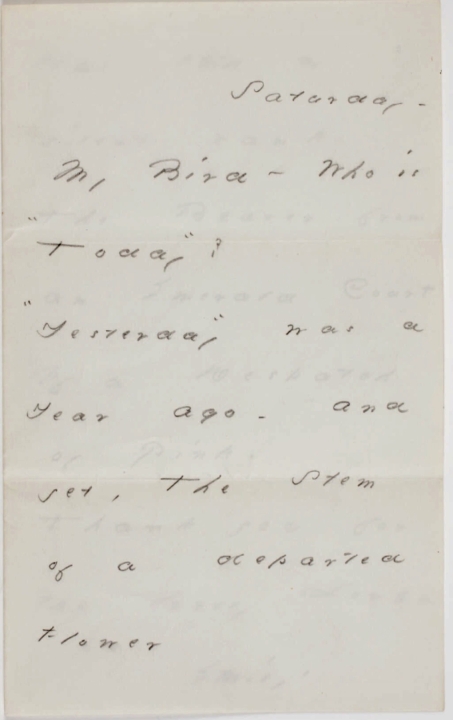 Saturday -
My Bird - Who is
"Today"?
"Yesterday" was a
Year ago - and
yet, the Stem
of a departed
Flower